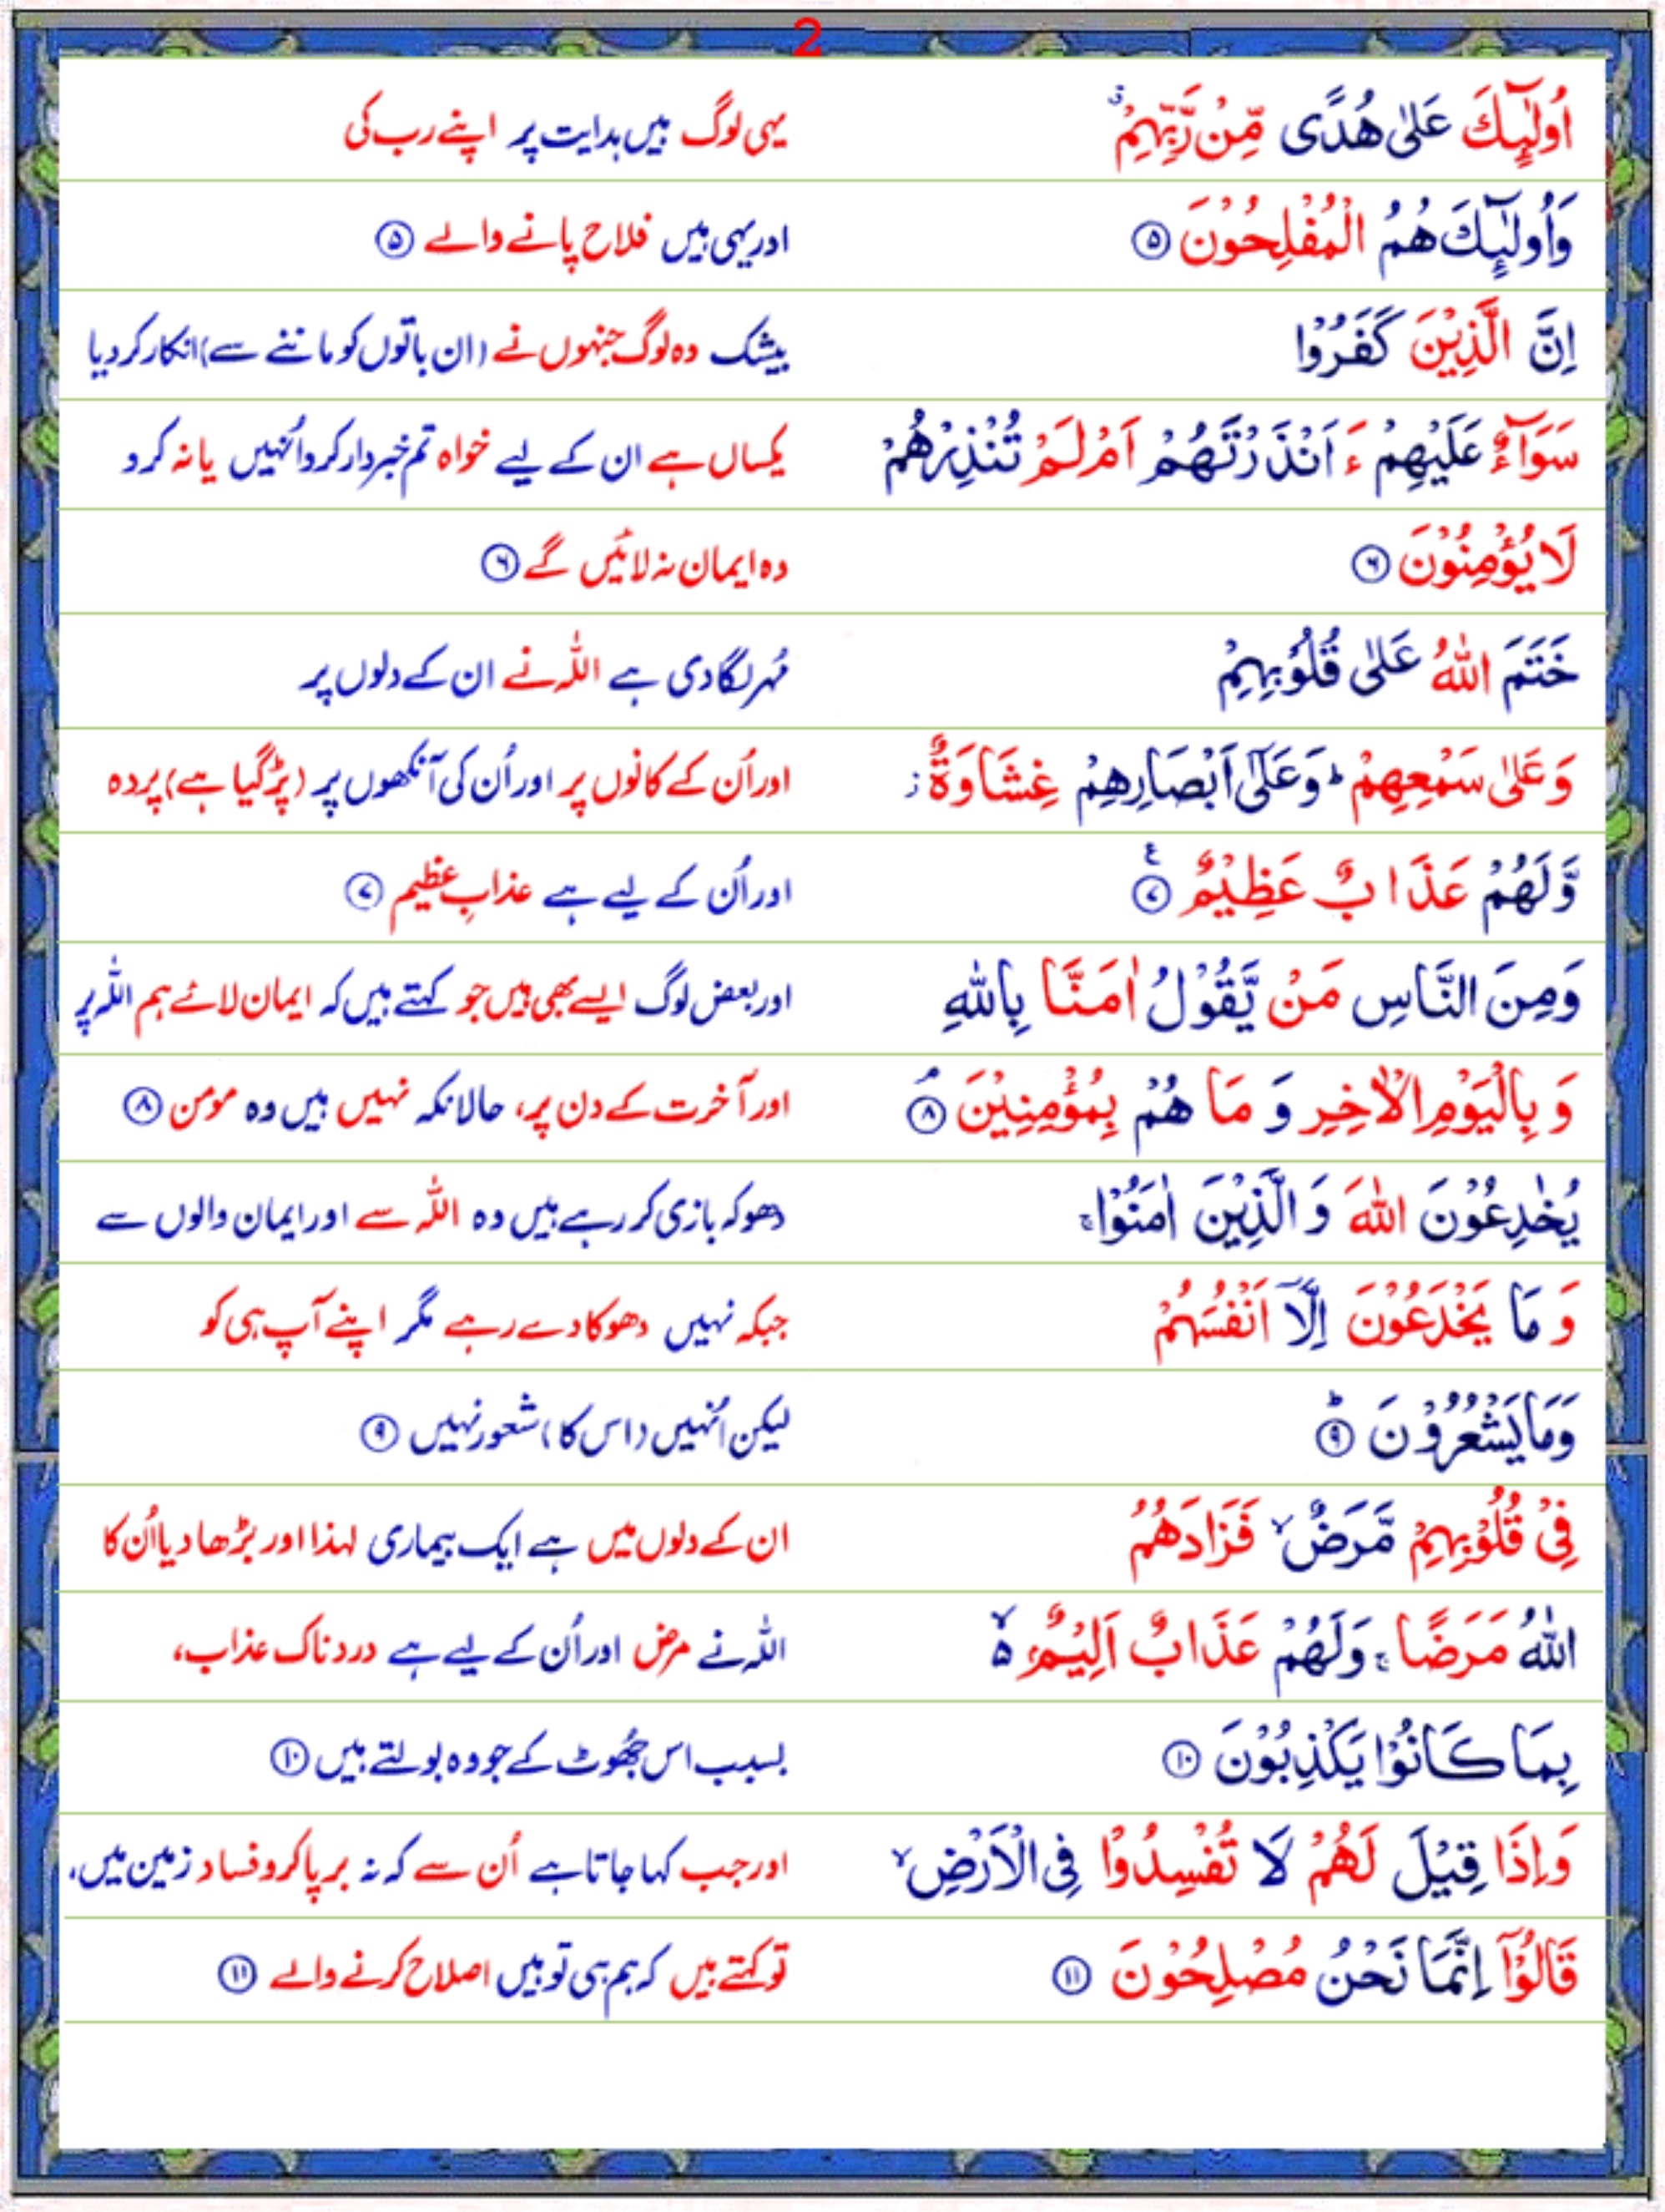 2
اُولٰٓئِكَ عَلٰى هُدًى مِّنْ رَّبِّهِمْ ۗ یہی لوگ ہیں ہدایت پر اپنے رب کی
وَاُولٰٓئِكَ هُمُ الْمُفْلِحُوْنَ ۵ اور یہی ہیں فلاح پانے والے ۵
اِنَّ الَّذِيْنَ كَفَرُوْا بیشک وہ لوگ جنہوں نے (ان باتوں کو ماننے سے) انکار کر دیا
سَوَآءٌ عَلَيْهِمْ ءَاَنْذَرْتَهُمْ اَمْ لَمْ تُنْذِرْهُمْ یکساں ہے ان کے لیے خواہ تم خبردار کرو اُنہیں یا نہ کرو
لَا يُؤْمِنُوْنَ ۶ وہ ایمان نہ لائیں گے ۶
خَتَمَ اللّٰهُ عَلٰى قُلُوْبِهِمْ مُہر لگا دی ہے اللہ نے ان کے دلوں پر
وَعَلٰى سَمْعِهِمْ ؕ وَعَلٰٓى اَبْصَارِهِمْ غِشَاوَةٌ ز اور اُن کے کانوں پر اور اُن کی آنکھوں پر (پڑ گیا ہے) پردہ
وَّلَهُمْ عَذَابٌ عَظِيْمٌ ع ۷ اور اُن کے لیے ہے عذابِ عظیم ۷
وَمِنَ النَّاسِ مَنْ يَّقُوْلُ اٰمَنَّا بِاللّٰهِ اور بعض لوگ ایسے بھی ہیں جو کہتے ہیں کہ ایمان لائے ہم اللہ پر
وَ بِالْيَوْمِ الْاٰخِرِ وَ مَا هُمْ بِمُؤْمِنِيْنَ ۘ ۸ اور آخرت کے دن پر، حالانکہ نہیں ہیں وہ مومن ۸
يُخٰدِعُوْنَ اللّٰهَ وَ الَّذِيْنَ اٰمَنُوْا ۚ دھوکہ بازی کر رہے ہیں وہ اللہ سے اور ایمان والوں سے
وَ مَا يَخْدَعُوْنَ اِلَّآ اَنْفُسَهُمْ جبکہ نہیں دھوکا دے رہے مگر اپنے آپ ہی کو
وَمَا يَشْعُرُوْنَ ؕ ۹ لیکن اُنہیں (اس کا) شعور نہیں ۹
فِىْ قُلُوْبِهِمْ مَّرَضٌ ۙ فَزَادَهُمُ ان کے دلوں میں ہے ایک بیماری لہٰذا اور بڑھا دیا اُن کا
اللّٰهُ مَرَضًا ۚ وَلَهُمْ عَذَابٌ اَلِيْمٌۢ ۙ۵ اللہ نے مرض اور اُن کے لیے ہے دردناک عذاب،
بِمَا كَانُوْا يَكْذِبُوْنَ ۱۰ بسبب اس جُھوٹ کے جو وہ بولتے ہیں ۱۰
وَاِذَا قِيْلَ لَهُمْ لَا تُفْسِدُوْا فِى الْاَرْضِ ۙ اور جب کہا جاتا ہے اُن سے کہ نہ برپا کرو فساد زمین میں،
قَالُوْٓا اِنَّمَا نَحْنُ مُصْلِحُوْنَ ۱۱ تو کہتے ہیں کہ ہم ہی تو ہیں اصلاح کرنے والے ۱۱